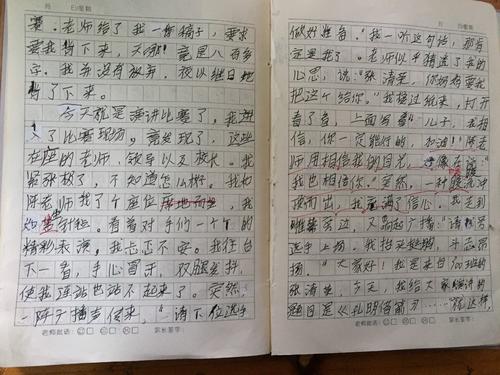 月 日 星期
赛。老师给了我一份稿子，要求
要我背下来，天哪！竟是八百多
字。我并没有放弃，夜以继日地
背了下来。
今天就是演讲比赛了，我进
入了比赛现场，竟发现了，这些
在座的老师、领导以及校长。我
紧张极了，不知道怎么办。我和
陈老师找了个座位席地而坐，我
如坐针毡。看着对手们一个个的
精彩表演，我忐忑不安。我往台
下一看，手心冒汗，双腿发抖，
使我连站也站不起来了。突然，
一阵广播声传来，“请下位选手
老师批语： 家长签字：
月 日 星期
做好准备。”我一听这句话，那肯
定是我了。老师似乎猜透了我的
心思，说：“张清垚，你妈妈要我
把这个给你。”我接过纸来，打开
看了看，上面写着“儿子，我相
信，你一定能行的，加油！”陈老
师用相信我的目光，好像在说：“
我也相信你。”突然，一种暖流冲
涌而出，我充满了信心。我走到
帷幕旁边，又响起广播：“请 号
选手上场。我抬头挺胸，斗志昂
扬。“大家好！我是来自 班的
张清垚，今天，我给大家演讲的
题目是《孔明借箭》……”就这样，
老师批语： 家长签字：